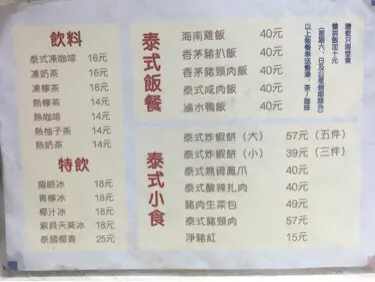 飲料
泰式凍咖啡 16元
凍奶茶 16元
凍檸茶 16元
熱檸茶 14元
熱咖啡 14元
熱柚子茶 14元
熱奶茶 14元
特飲
龍眼冰 18元
青檸冰 18元
椰汁冰 18元
紫貝天葵冰 18元
泰國椰青 25元
泰式飯餐
海南雞飯 40元
香茅豬扒飯 40元
香茅豬頸肉飯 40元
泰式咸肉飯 40元
滷水鴨飯 40元
以上飯餐奉送餐湯、茶/咖啡
(星期六、日及公眾假期除外)
轉拼飯加十元
贈飲只限堂食
泰式小食
泰式炸蝦餅(大) 57元(五件)
泰式炸蝦餅(小) 39元(三件)
泰式無骨鳳爪 40元
泰式酸辣扎肉 40元
豬肉生菜包 49元
泰式豬頸肉 57元
淨豬紅 15元